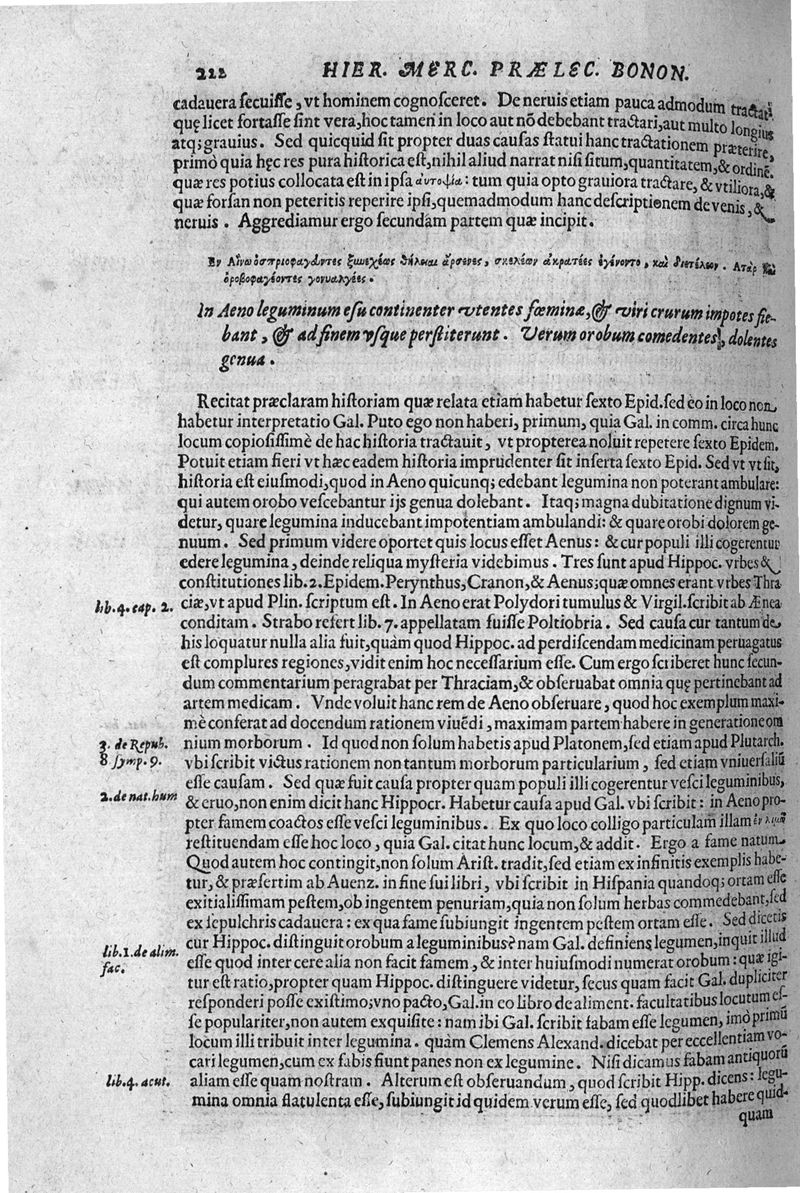 212 HIER. MERC. PRÆLEC. BONON.
cadauera ſecuiſſe, vt hominem cognoſceret. De neruis etiam pauca admodum tractat,
quę licet fortaſſe ſint vera, hoc tamen in loco aut nō debebant tractari, aut multo longius
atq; grauius. Sed quicquid ſit propter duas cauſas ſtatui hanc tractationem præterire,
primò quia hęc res pura hiſtorica eſt, nihil aliud narrat niſi ſitum, quantitatem, & ordinē.
quæ res potius collocata eſt in ipſa ἀυτοψία: tum quia opto grauiora tractare, & vtiliora, &
quæ forſan non peteritis reperire ipſi, quemadmodum hanc deſcriptionem de venis, &
neruis. Aggrediamur ergo ſecundam partem quæ incipit.
Εν Αἴνῳ ὀσπριοφαγέοντες ξυνεχέως θήλειαι ἄρσενες, σκελέων ἀκρατέες ἐγίνοντο, καὶ διετέλεον. Ατὰρ καὶ
ὀροβοφαγέοντες γονυαλγέες.
In Aeno leguminum eſu continenter vtentes fœminæ, & viri crurum impotes fie-
bant, & ad finem vſque perſtiterunt. Verum orobum comedentes, dolentes
genua.
Recitat præclaram hiſtoriam quæ relata etiam habetur ſexto Epid. ſed eo in loco non
habetur interpretatio Gal. Puto ego non haberi, primum, quia Gal. in comm. circa hunc
locum copioſiſſimè de hac hiſtoria tractauit, vt propterea noluit repetere ſexto Epidem.
Potuit etiam fieri vt hæc eadem hiſtoria imprudenter ſit inſerta ſexto Epid. Sed vt vt ſit,
hiſtoria eſt eiuſmodi, quod in Aeno quicunq; edebant legumina non poterant ambulare:
qui autem orobo veſcebantur ijs genua dolebant. Itaq; magna dubitatione dignum vi-
detur, quare legumina inducebant impotentiam ambulandi: & quare orobi dolorem ge-
nuum. Sed primum videre oportet quis locus eſſet Aenus: & cur populi illi cogerentur
edere legumina, deinde reliqua myſteria videbimus. Tres ſunt apud Hippoc. vrbes &
conſtitutiones lib. 2. Epidem. Perynthus, Cranon, & Aenus; quæ omnes erant vrbes Thra
lib. 4. cap. 2. ciæ, vt apud Plin. ſcriptum eſt. In Aeno erat Polydori tumulus & Virgil. ſcribit ab Ænea
conditam. Strabo refert lib. 7. appellatam fuiſſe Poltiobria. Sed cauſa cur tantum de
his loquatur nulla alia fuit, quàm quod Hippoc. ad perdiſcendam medicinam peruagatus
eſt complures regiones, vidit enim hoc neceſſarium eſſe. Cum ergo ſcriberet hunc ſecun-
dum commentarium peragrabat per Thraciam, & obſeruabat omnia quę pertinebant ad
artem medicam. Vnde voluit hanc rem de Aeno obſeruare, quod hoc exemplum maxi-
mè conferat ad docendum rationem viuēdi, maximam partem habere in generatione om
3. de Repub. nium morborum. Id quod non ſolum habetis apud Platonem, ſed etiam apud Plutarch.
8 ſymp. 9. vbi ſcribit victus rationem non tantum morborum particularium, ſed etiam vniuerſaliū
eſſe cauſam. Sed quæ fuit cauſa propter quam populi illi cogerentur veſci leguminibus,
2. de nat. hum & eruo, non enim dicit hanc Hippocr. Habetur cauſa apud Gal. vbi ſcribit: in Aeno pro-
pter famem coactos eſſe veſci leguminibus. Ex quo loco colligo particulam illam ἐν λιμῷ
reſtituendam eſſe hoc loco, quia Gal. citat hunc locum, & addit. Ergo a fame natum
Quod autem hoc contingit, non ſolum Ariſt. tradit, ſed etiam ex infinitis exemplis habe-
tur, & præſertim ab Auenz. in fine ſui libri, vbi ſcribit in Hiſpania quandoq; ortam eſſe
exitialiſſimam peſtem, ob ingentem penuriam, quia non ſolum herbas commedebant, ſed
ex ſepulchris cadauera: ex qua fame ſubiungit ingentem peſtem ortam eſſe. Sed dicetis
lib. 1. de alim. cur Hippoc. diſtinguit orobum a leguminibus? nam Gal. definiens legumen, inquit illud
fac. eſſe quod inter cerealia non facit famem, & inter huiuſmodi numerat orobum: quæ igi-
tur eſt ratio, propter quam Hippoc. diſtinguere videtur, ſecus quam facit Gal. dupliciter
reſponderi poſſe exiſtimo; vno pacto, Gal. in eo libro de aliment. facultatibus locutum eſ-
ſe populariter, non autem exquiſite: nam ibi Gal. ſcribit fabam eſſe legumen, imò primū
locum illi tribuit inter legumina. quàm Clemens Alexand. dicebat per eccellentiam vo-
cari legumen, cum ex fabis fiunt panes non ex legumine. Niſi dicamus fabam antiquorū
lib. 4. acut. aliam eſſe quam noſtram. Alterum eſt obſeruandum, quod ſcribit Hipp. dicens: legu-
mina omnia flatulenta eſſe, ſubiungit id quidem verum eſſe, ſed quodlibet habere quid-
quam